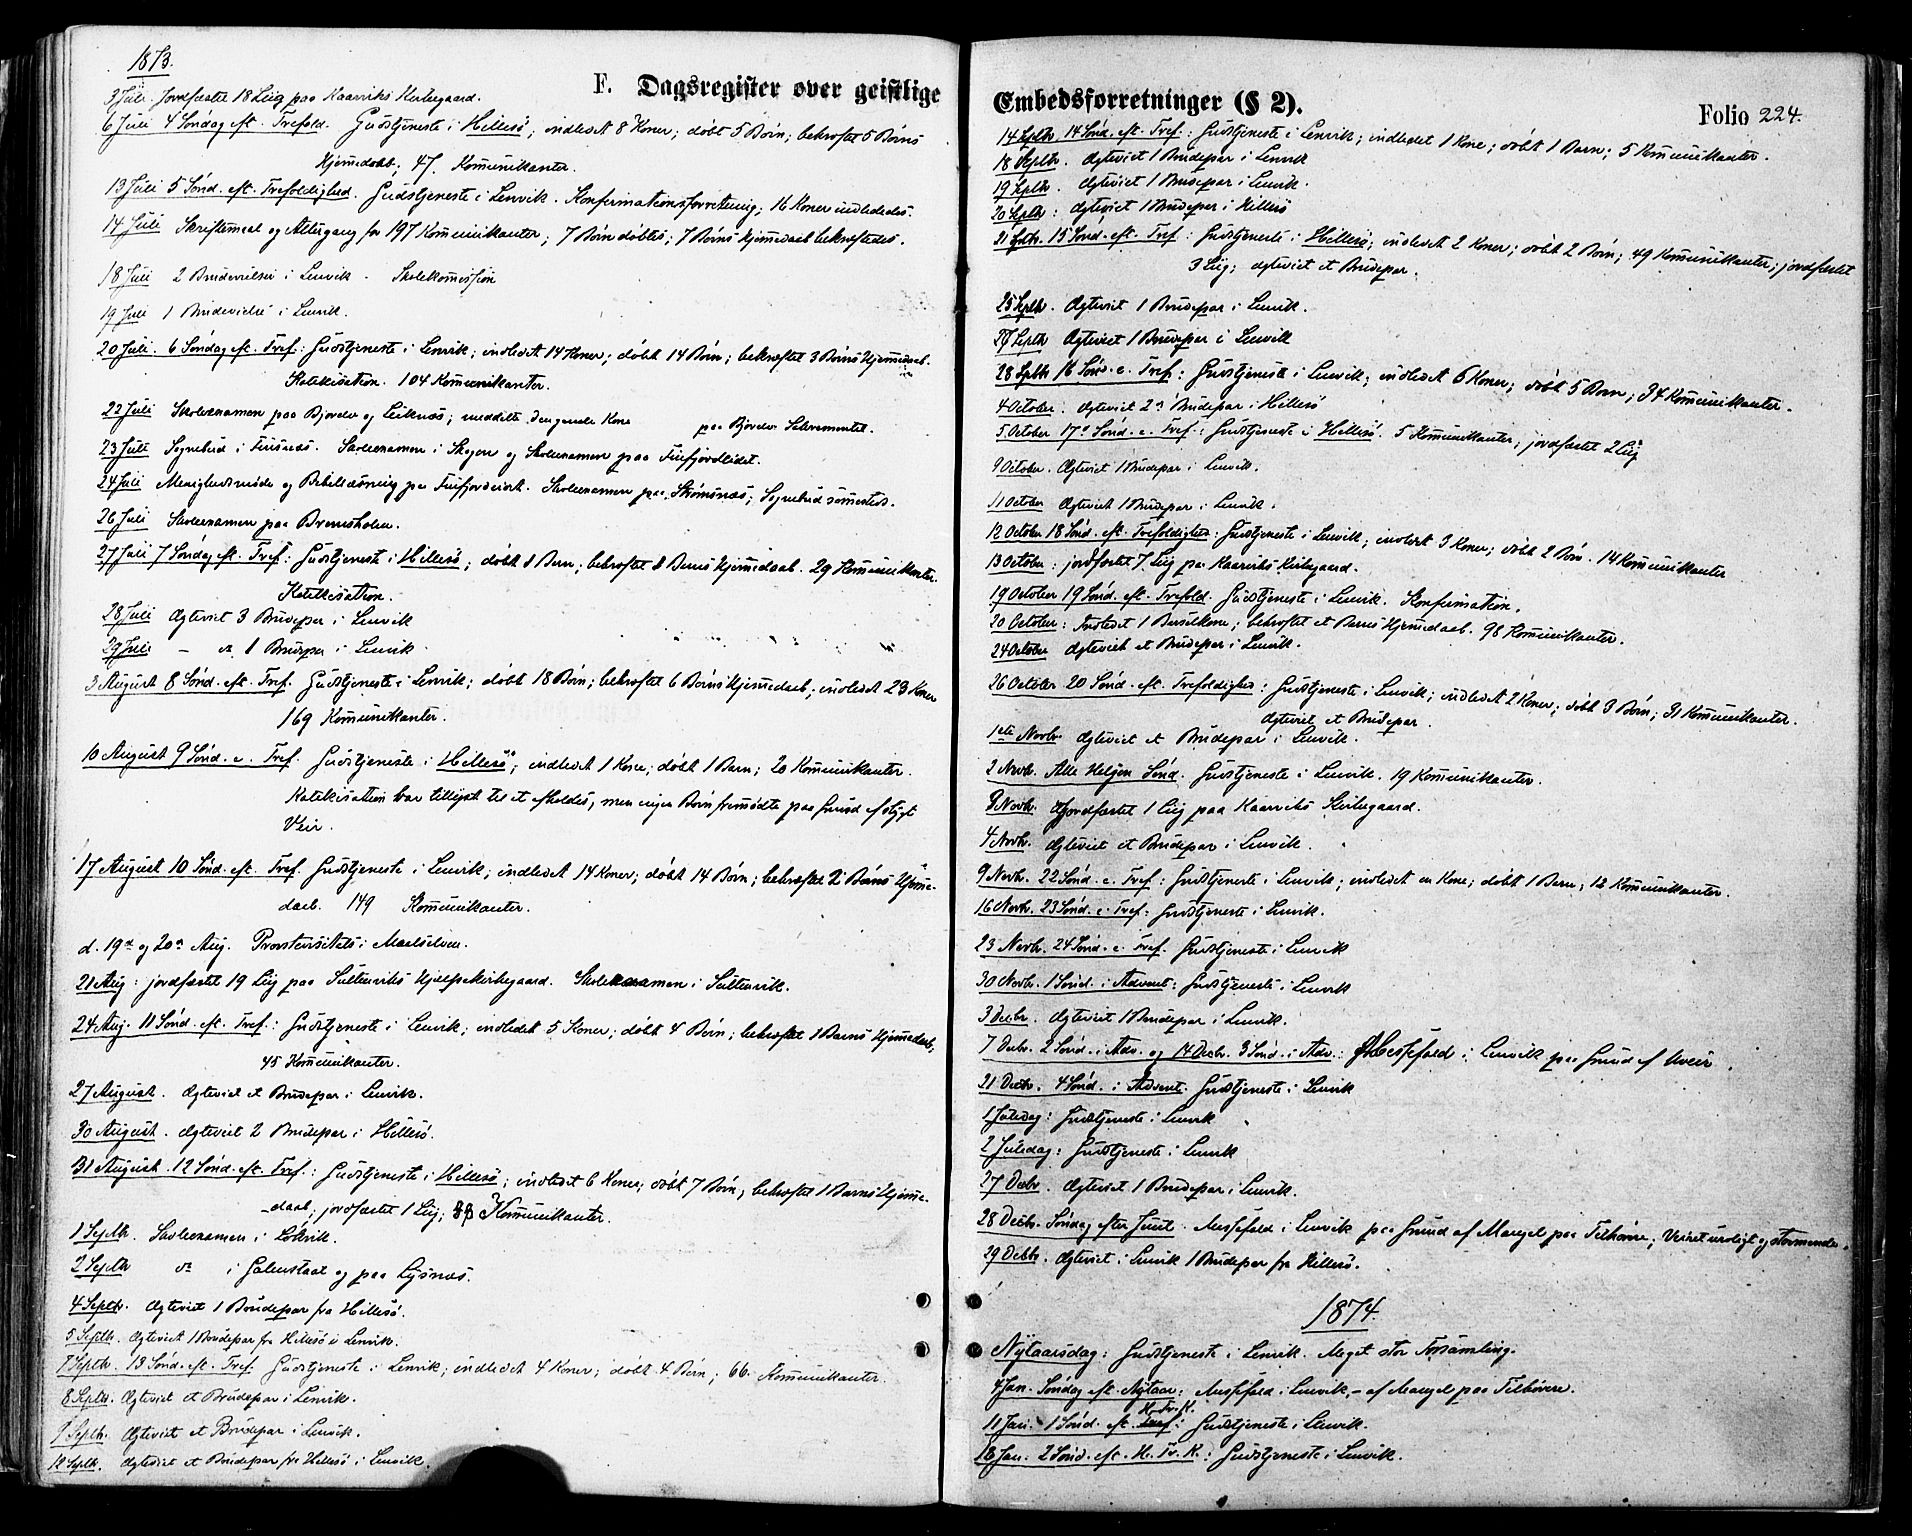 1873.
F. Dagsregister over geistlige
3 Juli. Jordfæstet 18 Liig paa Kaarviks Kirkegaard.
6 Juli 4 Søndag eft. Trefold. Gudstjeneste i Hillesø; indledet 8 Koner; døbt 5 Børn; bekræftet 5 Børns
Hjemedaab; 47. Komunikanter.
13 Juli 5 Sønd. eft. Trefoldighed. Gudstjeneste i Lenvik. Konfirmationsforretning; 16 Koner indlededes.
14 Juli Skriftemaal og Altergang for 197 Komunikanter; 7 Børn døbtes; 7 Børns Hjemedaab bekræftedes.
18 Juli 2 Brudevielser i Lenvik. Skolekomission
19 Juli 1 Brudevielse i Lenvik.
20 Juli. 6 Søndag eft. Tref: Gudstjeneste i Lenvik; indledet 14 Koner; døbt 14 Børn; bekræftet 3 Børns Hjemedaab.
Katekisation. 104 Komunikanter.
22 Juli Skoleexamen paa Bjorelv og Leiknæs; meddelte Kone paa Bjorelv Sakramentet.
23 Juli Sognebud i Finsnæs. Skoleexamen i Skogen og Skoleexamen paa Finfjordeidet.
24 Juli Menighedsmøde og Bibellæsning paa Finfjordeidet. Skoleexamen paa Sømedsteds.
26 Juli Skoleexamen paa Bremsholm.
27 Juli 7 Søndag eft. Tref: Gudstjeneste i Hillesø; døbt 1 Barn; bekræftet 8 Børns Hjemedaab. 29 Komunikanter.
Katekisation.
28 Juli Ægteviet 3 Brudepar i Lenvik
29 Juli – do 1 Brudepar i Lenvik.
3 August 8 Sønd. eft. Tref. Gudstjeneste i Lenvik; døbt 18 Børn; bekræftet 6 Børns Hjemedaab; indledet 23 Koner
169 Komunikanter.
10 August 9 Sønd. e. Tref. Gudstjeneste i Hillesø; indledet 1 Kone; døbt 1 Barn; 20 Komunikanter.
Katekisation var tillyst til at afholdes, men ingen Børn fremmødte paa Grund af stygt
Veir.
17 August 10 Sønd. eft. Tref. Gudstjeneste i Lenvik; indledet 14 Koner; døbt 14 Børn; bekræftet 2 Børns Hjeme-
daab. 149 Komunikanter.
d. 19de og 20de Aug. Provstevisitats i Maalselven.
21 Aug: jordfæstet 19 Liig paa Sultenviks Hjælpekirkegaard. Skoleexamen i Sultenvik.
24 Aug. 11 Sønd. eft. Tref: Gudstjeneste i Lenvik; indledet 5 Koner; døbt 4 Børn; bekræftet 1 Barns Hjemedaab;
45 Komunikanter.
27 August. Ægteviet et Brudepar i Lenvik.
30 August. Ægteviet 2 Brudepar i Hillesø.
31 August. 12 Sønd. eft. Tref.: Gudstjeneste i Hillesø; indledet 6 Koner; døbt 7 Børn; bekræftet 1 Barns Hjeme-
-daab; jordfæstet 1 Liig; Komunikanter.
1 Septbr. Skoleexamen i Løkvik.
2 Septbr do i Galenstad og paa Lysnæs.
4 Septbr. Ægteviet 1 Brudepar fra Hillesø.
5 Septbr. Ægteviet 1 Brudepar fra Hillesø i Lenvik.
7 Septbr. 13 Sønd. eft. Tref. Gudstjeneste i Lenvik; indledet 4 Koner; døbt 4 Børn; 66. Komunikanter.
8 Septbr. Ægteviet et Brudepar i Lenvik.
9 Septbr. Ægteviet et Brudepar i Lenvik.
12 Septbr. Ægteviet et Brudepar fra Hillesø i Lenvik.
Embedsforretninger (§ 2).
Folio 224.
14 Septbr. 14 Sønd. eft. Tref.: Gudstjeneste i Lenvik; indledet 1 Kone; døbt 1 Barn; 5 Komunikanter.
18 Septbr. Ægteviet 1 Brudepar i Lenvik
19 Septbr. Ægteviet 1 Brudepar i Lenvik.
20 Septbr: Ægteviet 1 Brudepar i Hillesø
21 Septbr. 15 Sønd. eft. Tref: Gudstjeneste i Hillesø; indledet 2 Koner; døbt 2 Børn; 49 Komunikanter; jordfæstet
3 Liig; ægteviet et Brudepar.
25 Septbr. Ægteviet 1 Brudepar i Lenvik.
Septbr Ægteviet 1 Brudepar i Lenvik
28 Septbr 16 Sønd. e. Tref: Gudstjeneste i Lenvik; indledet 6 Koner; døbt 5 Børn; 34 Komunikanter.
4 October. Ægteviet 2 Brudepar i Hillesø
5 October 17de Sønd. e. Tref: Gudstjeneste i Hillesø. 5 Komunikanter; jordfæstet 2 Liig
9 October. Ægteviet 1 Brudepar i Lenvik.
11 October Ægteviet 1 Brudepar i Lenvik.
12 October 18 Sønd. eft. Trefoldighed: Gudstjeneste i Lenvik; indledt 3 Koner; døbt 2 Børn. 14 Komunikanter
13 October: jordfæstet 7 Liig paa Kaarviks Kirkegaard.
19 October 19 Sønd. eft. Trefold. Gudstjeneste i Lenvik. Konfirmation.
20 October: Indledet 1 Barselkone; bekræftet et Barns Hjemedaab. 98 Komunikanter.
24 October Ægteviet et Brudepar i Lenvik.
26 October 20 Sønd. eft. Trefoldighed: Gudstjeneste i Lenvik; indledet 2 Koner; døbt 3 Børn; 31 Komunikanter.
Ægteviet et Brudepar.
1ste Novbr. Ægteviet et Brudepar i Lenvik.
2 Novbr. Alle Helgen Sønd. Gudstjeneste i Lenvik. 19 Komunikanter.
3 Novbr. Jordfæstet 1 Liig paa Kaarviks Kirkegaard.
4 Novbr. Ægteviet et Brudepar i Lenvik.
9 Novbr. 22 Sønd. e. Tref: Gudstjeneste i Lenvik; indledet en Kone; døbt 1 Barn; 12 Komunikanter.
16 Novbr. 23 Sønd. e. Tref: Gudstjeneste i Lenvik.
23 Novbr. 24 Sønd. e. Tref. Gudstjeneste i Lenvik
30 Novbr. 1 Sønd. i Advent: Gudstjeneste i Lenvik
3 Decbr. Ægteviet 1 Brudepar i Lenvik.
7 Decbr. 2 Sønd. i Adv. og 14 Decbr. 3 Sønd. i Adv.: Messefald i Lenvik paa Grund af Uveir.
21 Decbr. 4 Sønd. i Advent. Gudstjeneste i Lenvik
1 Juledag: Gudstjeneste i Lenvik
2 Juledag: Gudstjeneste i Lenvik
27 Decbr. Ægteviet 1 Brudepar i Lenvik.
28 Decbr. Søndag efter Juul. Messefald i Lenvik paa Grund af Mangel paa Tilhørere; Veiret uroligt og stormende.
29 Decbr. Ægteviet i Lenvik 1 Brudepar fra Hillesø.
1874.
Nytaarsdag: Gudstjeneste i Lenvik. Meget stor Forsamling.
4 Jan. Søndag eft. Nytaar: Messefald i Lenvik, – af Mangel paa Tilhørere.
11 Jan. 1 Sønd. eft. H. Tr. K.: Gudstjeneste i Lenvik.
18 Jan. 2 Sønd. eft. H. Tr. K.: Gudstjeneste i Lenvik.